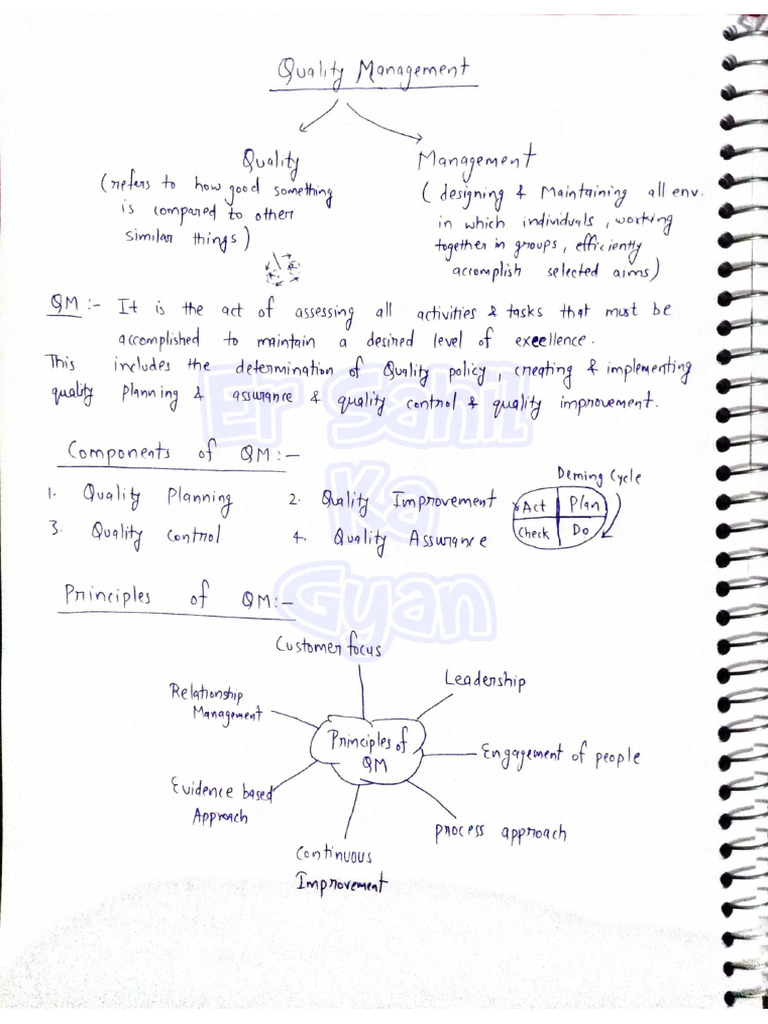 Quality Management
Quality
(refers to how good something
is compared to other
similar things)
Management
(designing & Maintaining all env.
in which individuals, working
together in groups, efficiently
accomplish selected aims)
QM :- It is the act of assessing all activities & tasks that must be
accomplished to maintain a desired level of excellence.
This includes the determination of Quality policy, creating & implementing
quality planning & assurance & quality control & quality improvement.
Components of QM :-
1. Quality Planning 2. Quality Improvement
3. Quality Control 4. Quality Assurance
Deming Cycle
Act Plan
Check Do
Principles of QM :-
Customer focus
Leadership
Relationship
Management
Principles of
QM
Engagement of people
Evidence based
Approach
Process approach
Continuous
Improvement
Er Sahil
Ka
Gyan